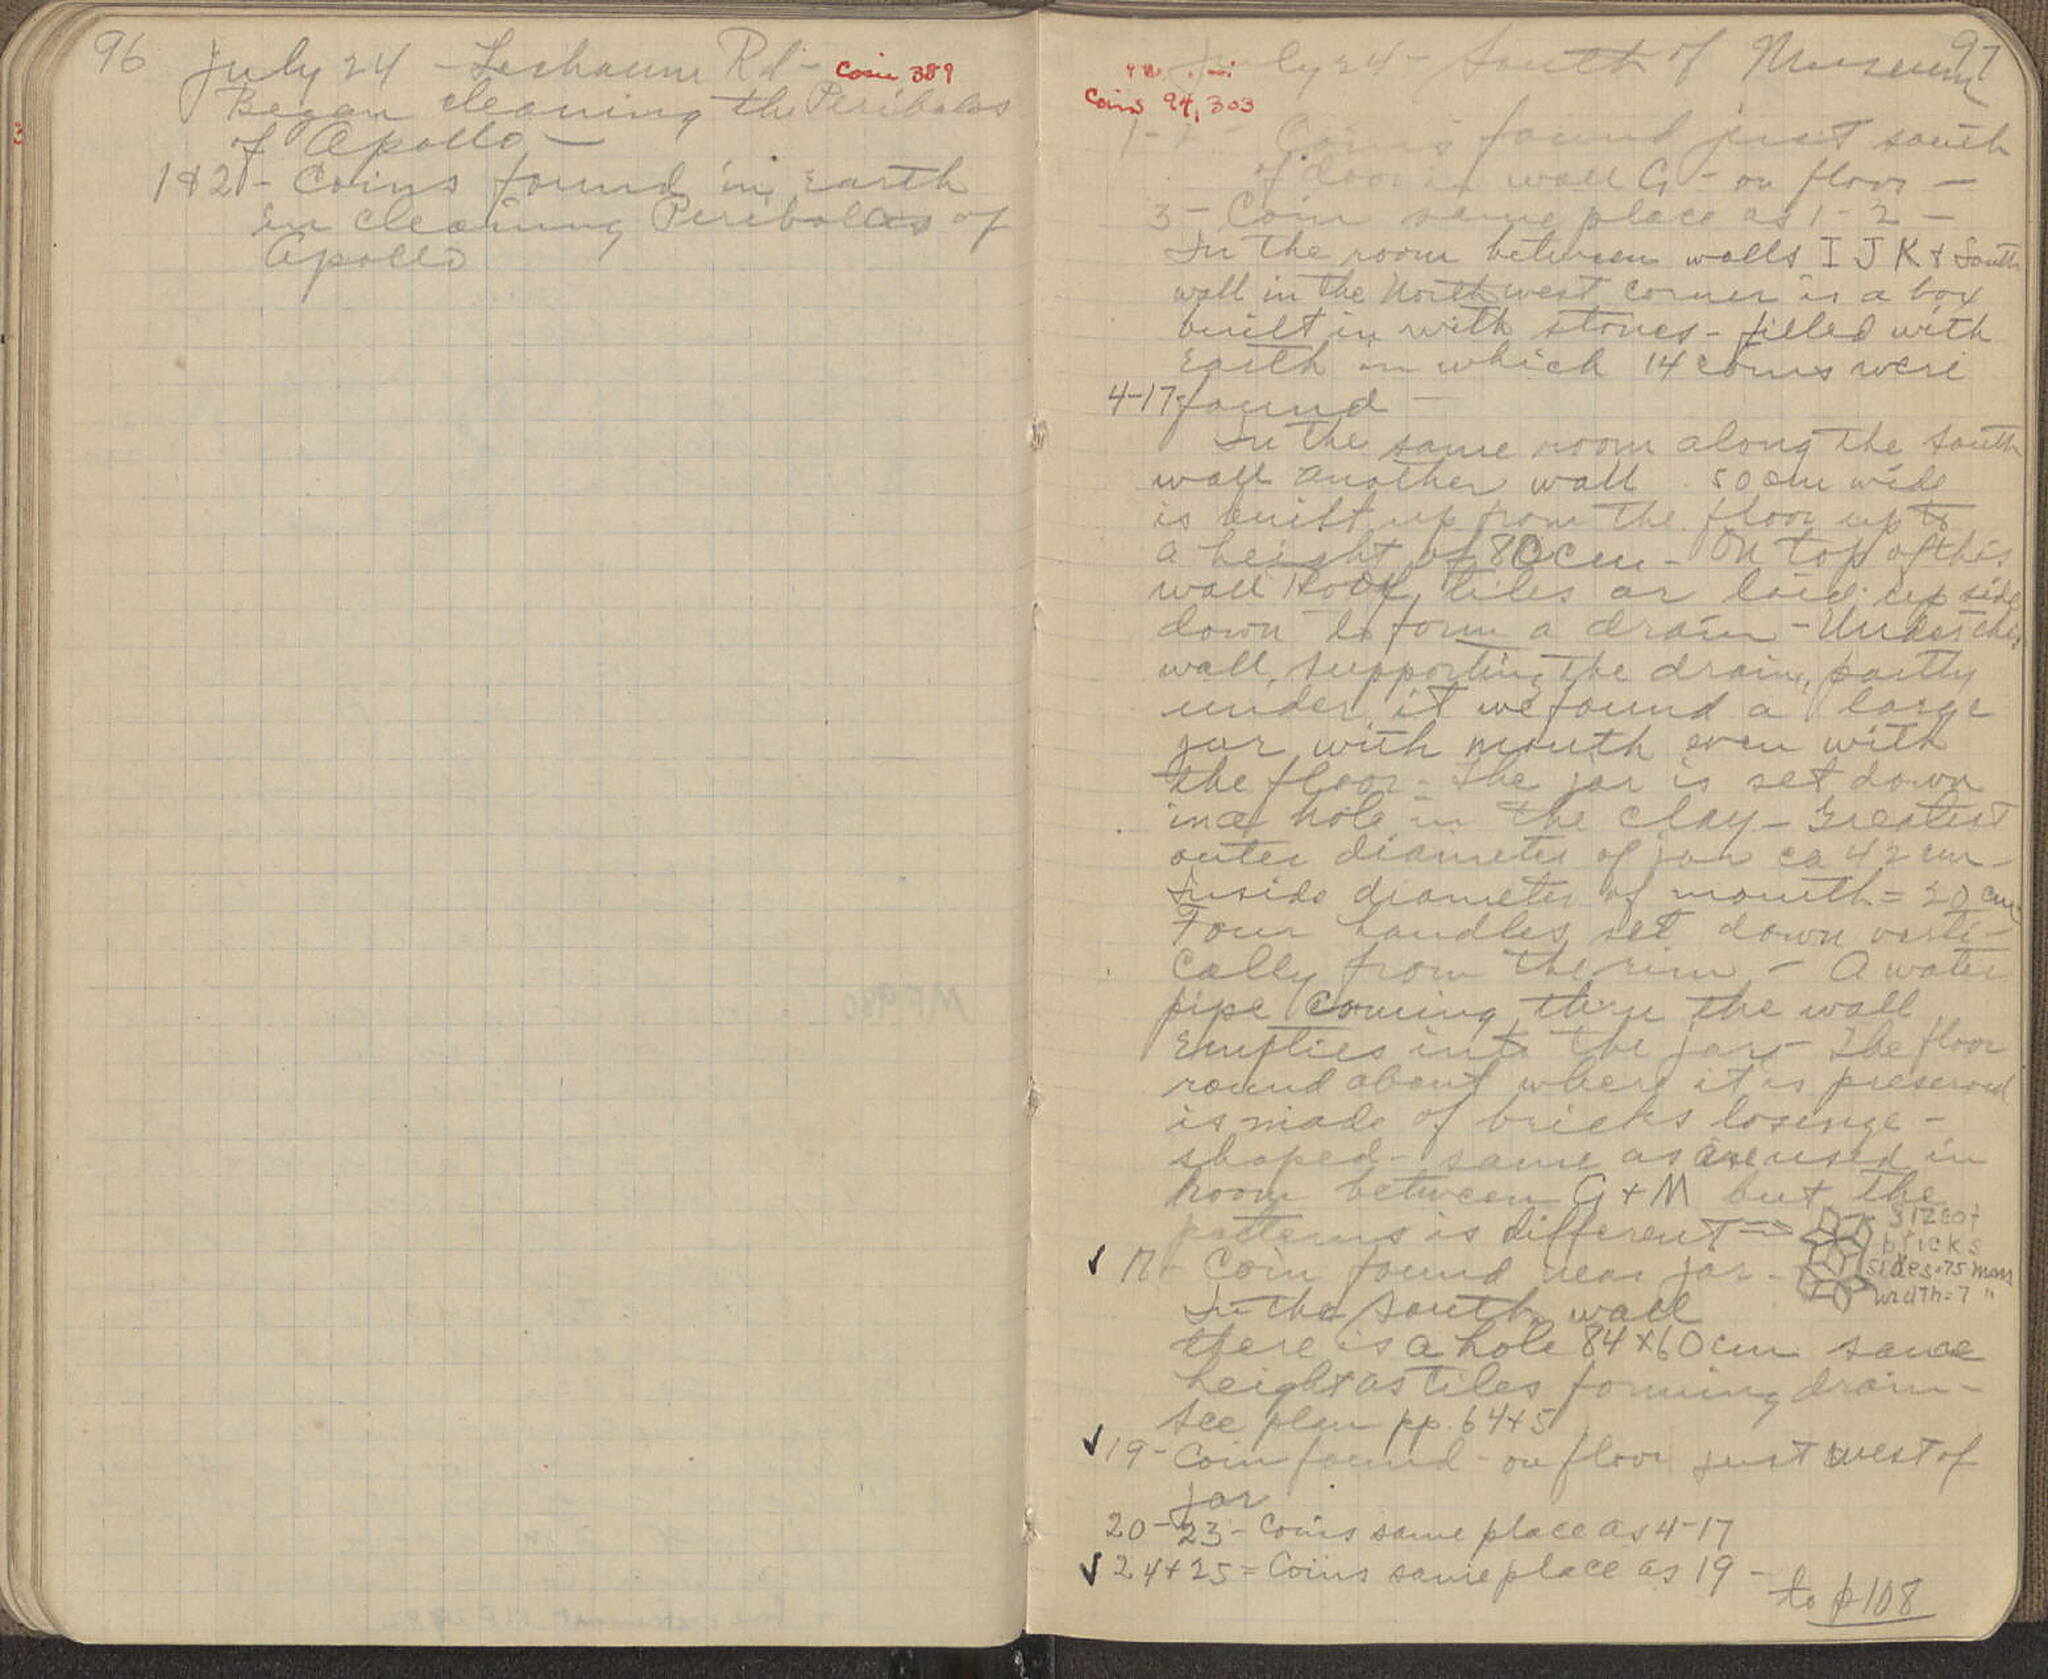 96
July 24 - Lechaeum Rd - Coin 389
Began cleaning the Peribolos
of Apollo -
1&2 - Coins found in Earth
in cleaning Peribolos of
Apollo
97
July 24 - South of Museum
Coins 94, 303
Coins found just south
of door in wall G - on floor -
3 - Coin same place as 1-2 -
In the room between walls I J K & South
wall in the Northwest corner is a box
built in with stones - filled with
Earth in which 14 coins were
4-17 found -
In the same room along the South
wall another wall 50 cm wide
is built up from the floor up to
a height of 80 cm - On top of this
wall Roof tiles ar laid up side
down to form a drain - Under this
wall, supporting the drain, partly
under it we found a large
jar with mouth even with
the floor - The jar is set down
in a hole in the clay - Greatest
outer diameter of jar ca 42 cm -
Inside diameter of mouth = 20 cm
Four handles set down verti-
cally from the rim - A water
pipe coming thru the wall
Empties into the jar - The floor
round about where it is preserved
is made of bricks losenge -
shaped - same as are used in
Room between G + M but the
patterns is different
size of
bricks
sides = 75 mm
width = 7 "
Coin found near jar -
In the South wall
there is a hole 84 x 60 cm same
height as tiles forming drain -
See plan pp. 64+5
19 - Coin found - on floor just west of
jar
20-23 - Coins same place as 4-17
24+25 = Coins same place as 19 -
to p 108